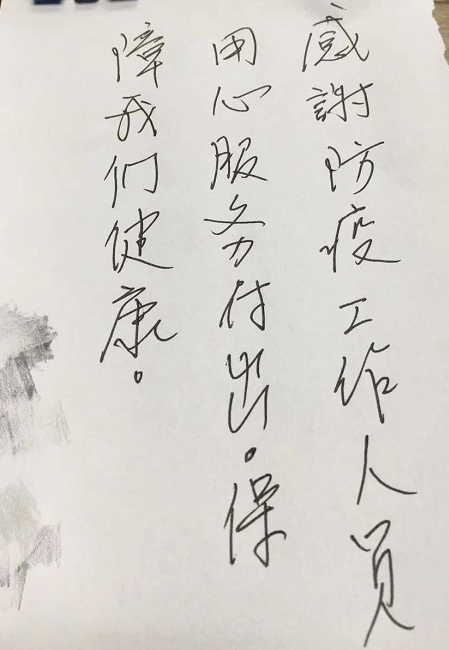 感謝防疫工作人员
用心服务付出。保
障我们健康。